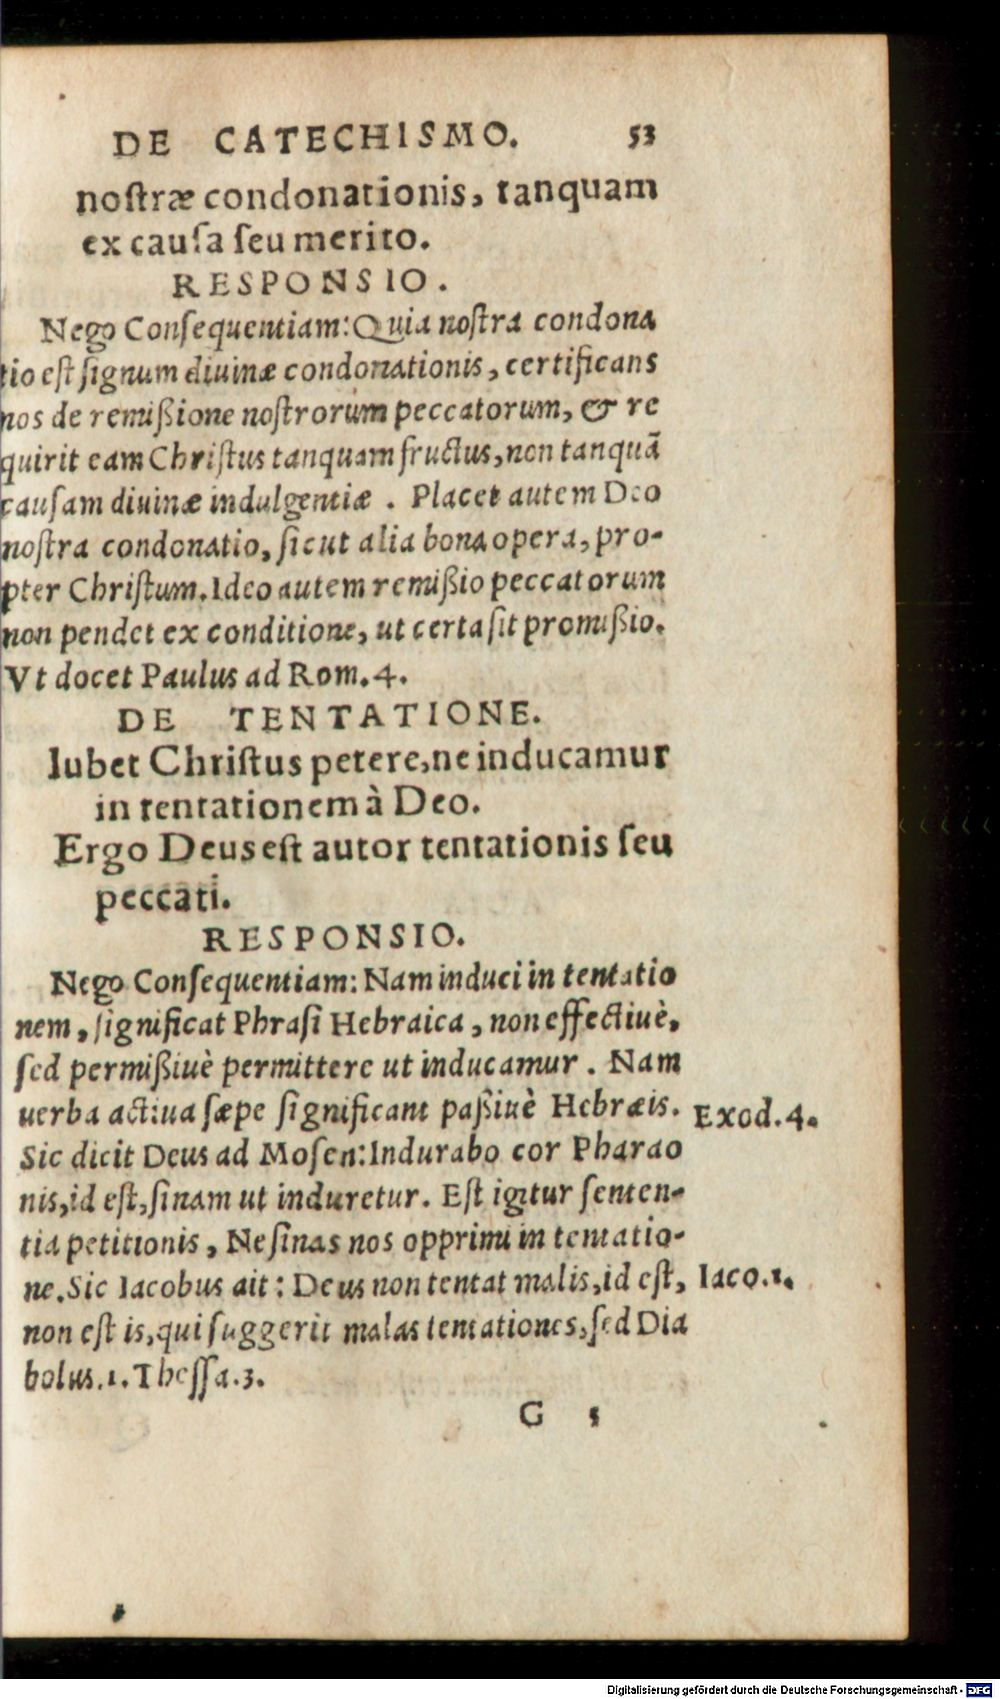 DE CATECHISMO. 53
noſtræ condonationis, tanquam
ex cauſa ſeu merito.
RESPONSIO.
Nego Conſequentiam: Quia noſtra condona
tio eſt ſignum diuinæ condonationis, certificans
nos de remißione noſtrorum peccatorum, & re
quirit eam Chriſtus tanquam fructus, non tanquã
cauſam diuinæ indulgentiæ. Placet autem Deo
noſtra condonatio, ſicut alia bona opera, pro-
pter Chriſtum. Ideo autem remißio peccatorum
non pendet ex conditione, ut certa ſit promißio.
Vt docet Paulus ad Rom. 4.
DE TENTATIONE.
Iubet Chriſtus petere, ne inducamur
in tentationem à Deo.
Ergo Deus eſt autor tentationis ſeu
peccati.
RESPONSIO.
Nego Conſequentiam: Nam induci in tentatio
nem, ſignificat Phraſi Hebraica, non effectiuè,
ſed permißiuè permittere ut inducamur. Nam
uerba actiua ſæpe ſignificant paßiuè Hebræis. Exod. 4.
Sic dicit Deus ad Moſen: Indurabo cor Pharao
nis, id eſt, ſinam ut induretur. Eſt igitur ſenten-
tia petitionis, Ne ſinas nos opprimi in tentatio-
ne. Sic Iacobus ait: Deus non tentat malis, id eſt, Iaco. 1.
non eſt is, qui ſuggerit malas tentationes, ſed Dia
bolus. 1. Theſſa. 3.
G 5
Digitalisierung gefördert durch die Deutsche Forschungsgemeinschaft - DFG